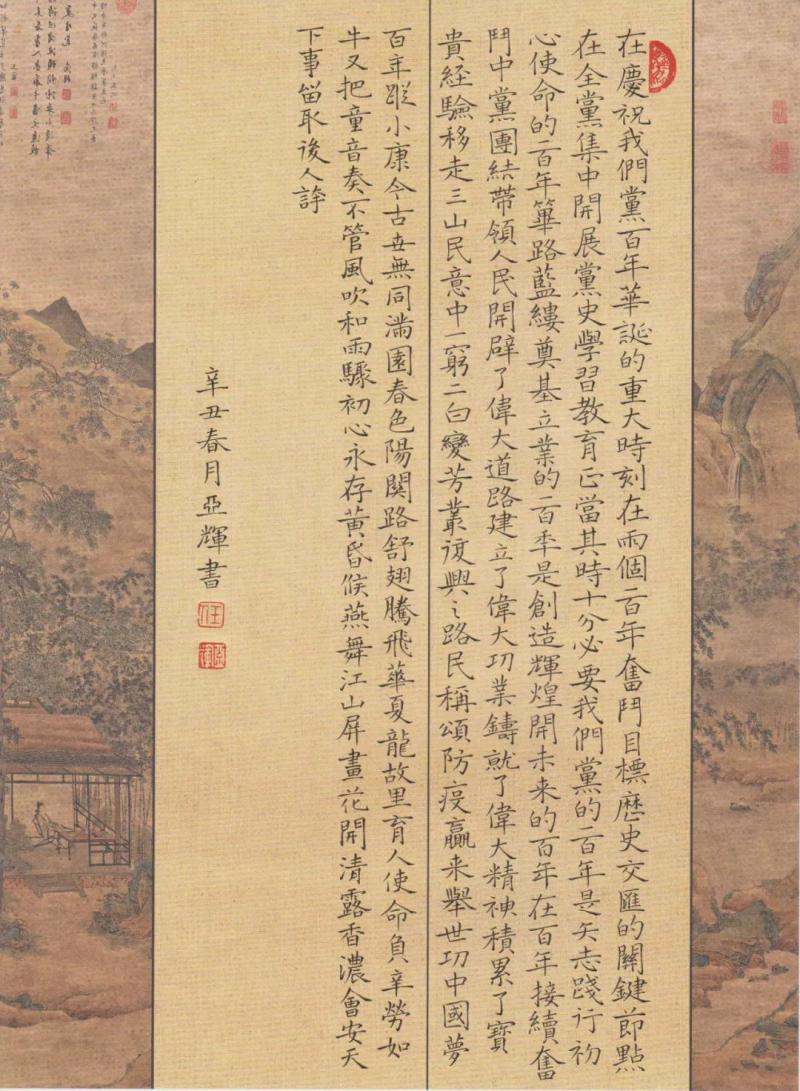 在慶祝我們黨百年華誕的重大時刻在兩個一百年奮鬥目標歷史交匯的關鍵節點
在全黨集中開展黨史學習教育正當其時十分必要我們黨的一百年是矢志踐行初
心使命的一百年篳路藍縷奠基立業的一百年是創造輝煌開未来的百年在百年接續奮
鬥中黨團結帶領人民開辟了偉大道路建立了偉大功業鑄就了偉大精神積累了寶
貴經驗移走三山民意中一窮二白變芳叢復興之路民稱頌防疫贏来舉世功中國夢
百年蹤小康今古世無同滿園春色陽関路舒翅騰飛華夏龍故里育人使命負辛勞如
牛又把童音奏不管風吹和雨驟初心永存黃昏候燕舞江山屏畫花開清露香濃會安天
下事留取後人評
辛丑春月亞輝書